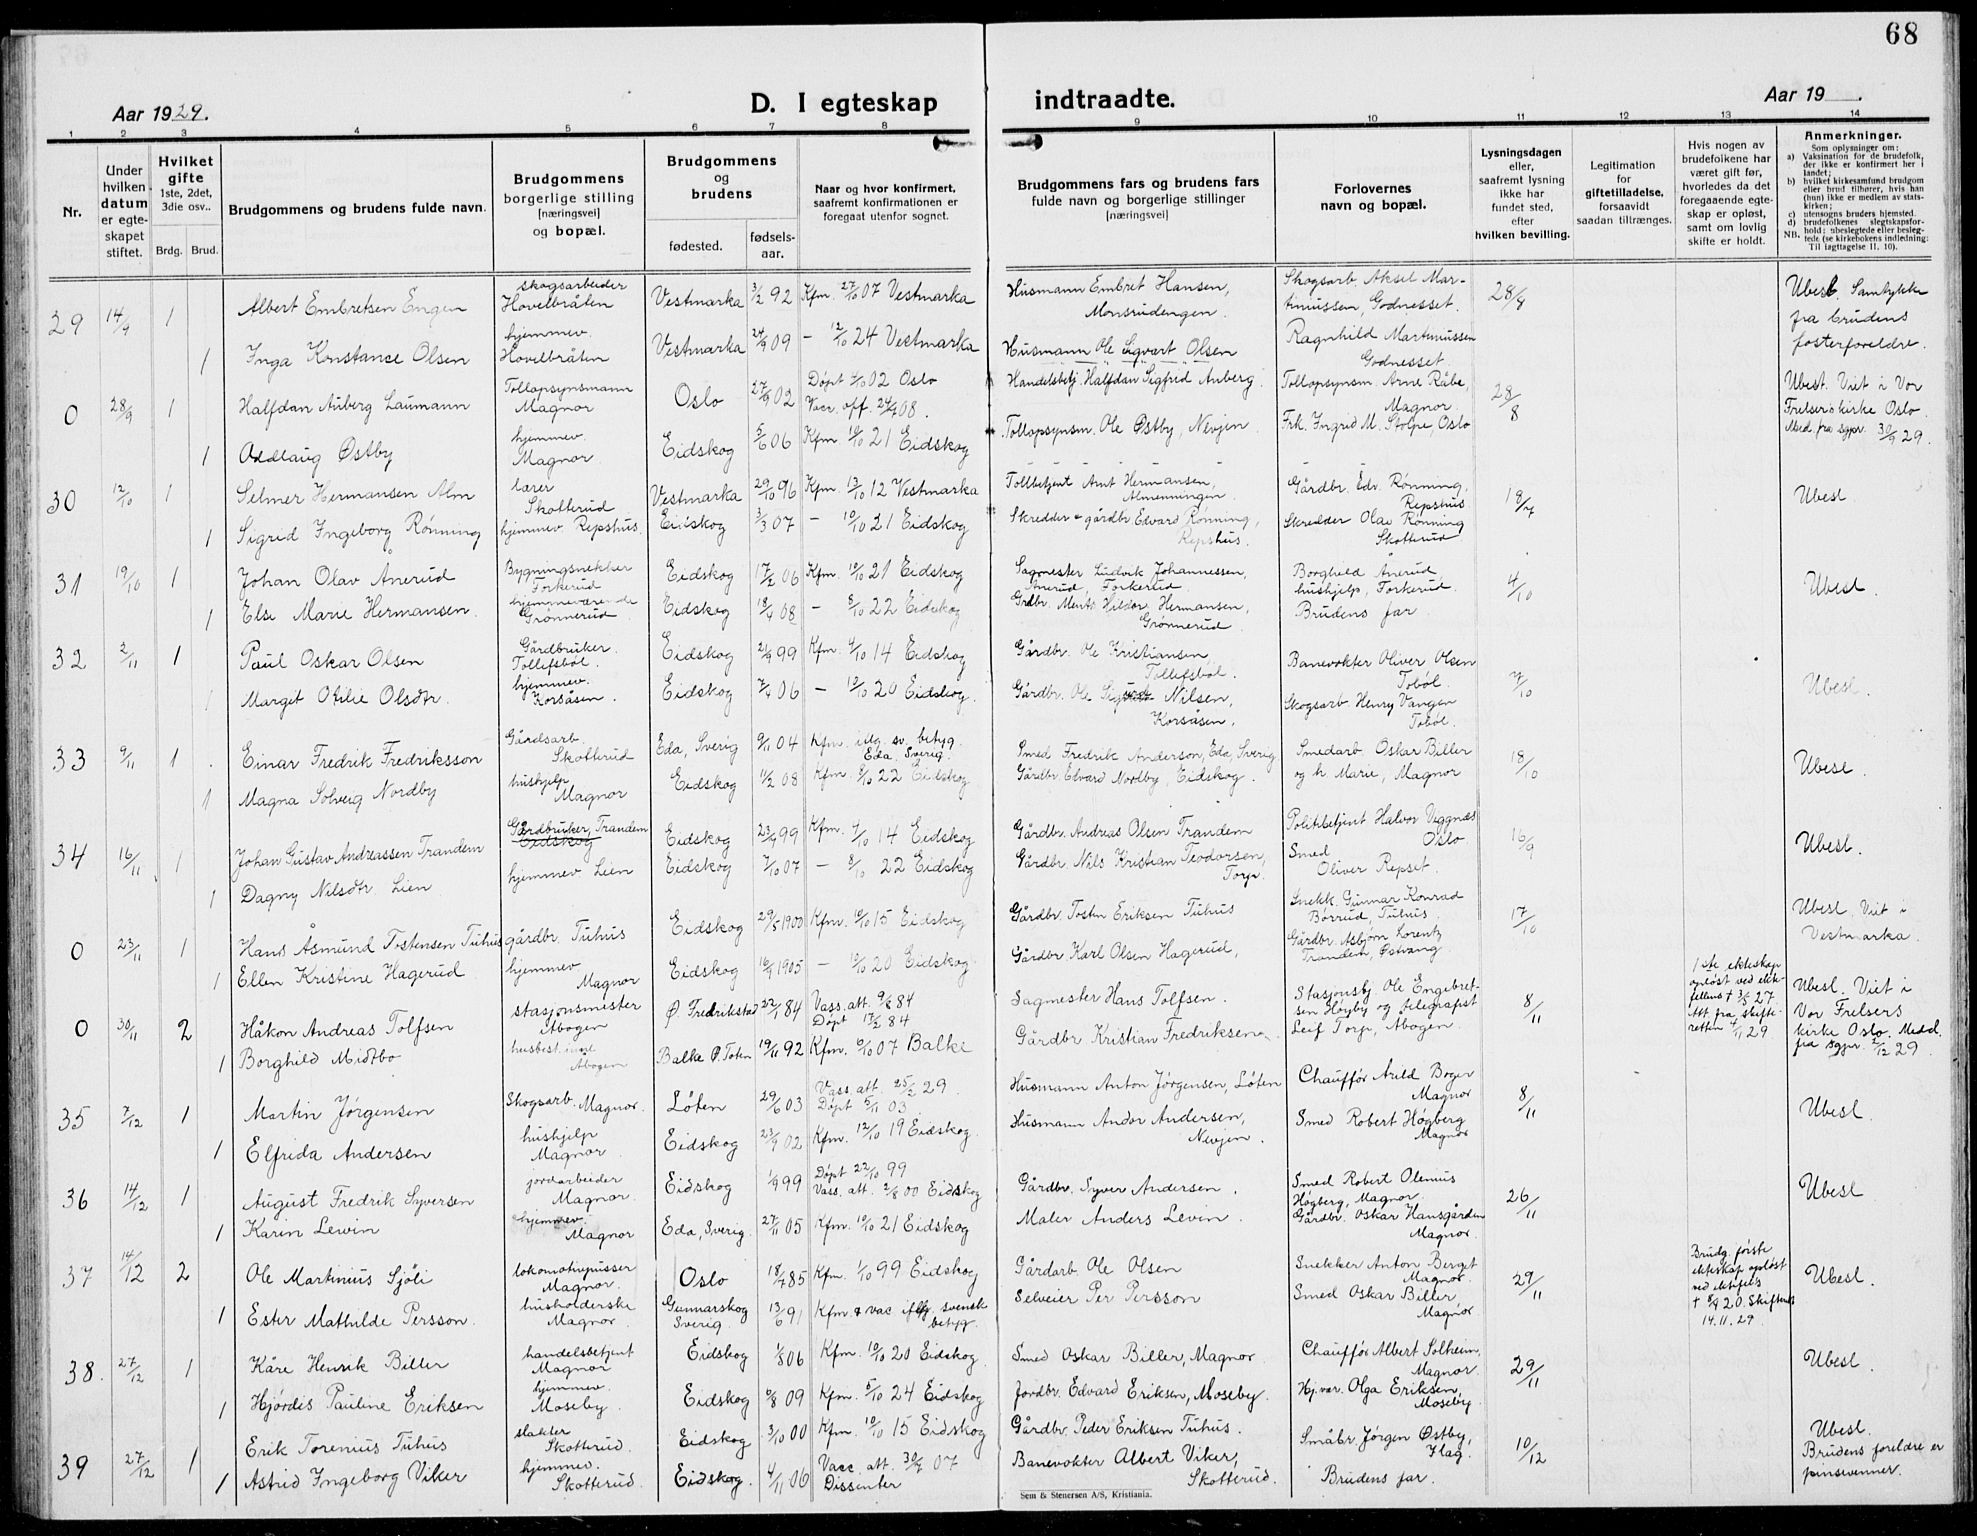 68
Aar 1929.
D. I egteskap
indtraadte.
Aar 19 .
1 2 3 4 5 6 7 8 9 10 11 12 13 14
Nr.
Under hvilken datum er egte-skapet stiftet.
Hvilket gifte
1ste, 2det, 3die osv..
Brdg. Brud.
Brudgommens og brudens fulde navn.
Brudgommens borgerlige stilling [næringsvei] og bopæl.
Brudgommens og brudens
fødested.
fødsels-aar.
Naar og hvor konfirmert, saafremt konfirmationen er foregaat utenfor sognet.
Brudgommens fars og brudens fars fulde navn og borgerlige stillinger [næringsvei]
Forlovernes navn og bopæl.
Lysningsdagen eller, saafremt lysning ikke har fundet sted, efter hvilken bevilling.
Legitimation for giftetilladelse, forsaavidt saadan tiltrænges.
Hvis nogen av brudefolkene har været gift før, hvorledes da det foregaaende egte-skap er opløst, samt om lovlig skifte er holdt.
Anmerkninger.
Som oplysninger om:
a) Vaksination for de brudefolk, der ikke er konfirmert her i landet;
b) hvilket kirkesamfund brudgom eller brud tilhører, hvis han (hun) ikke er medlem av stats-kirken;
c) utensogns bruders hjemsted.
d) brudefolkenes slegtskapsfor-hold: ubeslegtede eller beslegtede (se kirkebokens indledning:
NB. Til iagttagelse 11, 10).
29 14/9 1 Albert Embretsen Engen skogsarbeider Hovelbråten Vestmarka 3/2 92 Kfm. 27/10 07 Vestmarka Husmann Embret Hansen, Monsrudengen. Skogsarb. Aksel Mar-tinussen, Godnesset. 28/9 Ubesl. Samtykke fra brudens fosterforeldre.
1 Inga Kristance Olsen hjemmev. Hovelbråten Vestmarka 24/9 09 — 12/10 24 Vestmarka Husmann Ole Sigvart Olsen Ragnhild Martinussen Godnesset.
0 28/9 1 Halfdan Auberg Laumann Tollopsynsmann Magnor Oslo 27/9 02 Døpt 02 Oslo Vacc. off. 24/9 08. Handelsbetj. Halfdan Sigfrid Auberg. Tollopsynsm. Arne Råbe, Magnor. 28/8 Ubesl. Viet i Vor Frelsers kirke Oslo. Med. fra sgpr. 30/9 29.
1 Oddlaug Østby hjemmev. Magnor. Eidskog 5/6 06 Kfm. 10/10 21 Eidskog Tollopsynsm. Ole Østby, Nevjen. Frk. Ingrid M. Stolpe, Oslo
30 12/10 1 Selmer Hermansen Alm lærer Skotterud Vestmarka 29/10 96 Kfm. 13/10 12 Vestmarka Tollbetjent Arnt Hermansen, Almenningen. Gårdbr. Edv. Rønning, Repshus Ubesl.
1 Sigrid Ingeborg Rønning hjemmev. Repshus. Eidskog 3/3 07 — 10/10 21 Eidskog Skredder & gårdbr Edvard Rønning, Repshus. Skredder Olav Rønning Skotterud
31 19/10 1 Johan Olav Ånerud Bygningsnekker Forkerud Eidskog 17/2 06 Kfm. 10/10 21 Eidskog Sagmester Ludvik Johannessen, Ånerud, Forkerud Borghild Ånerud hushjelp, Forkerud. 4/10 Ubesl.
1 Else Marie Hermansen. hjemmeværende Grønnerud. Eidskog 18/4 08 — 8/10 22 Eidskog Hermansen, Grønnerud. Brudens far.
32 2/11 1 Paul Oskar Olsen Gårdbruker. Tollefsbøl. Eidskog 21/9 99 Kfm. 4/10 14 Eidskog Gårdbr. Ole Kristiansen Tollefsbøl. Banevokter Oliver Olsen Tobøl. 7/10 Ubesl.
1 Margit Otilie Olsdtr. hjemmev. Korsåsen. Eidskog 7/4 06 — 10/10 20 Eidskog. Gårdbr. Ole Nilsen, Korsåsen, Skogsarb. Henry Vangen Tobøl.
33 9/11 1 Einar Fredrik Fredriksson Gårdsarb. Skotterud Eda, Sverig 9/11 04 Kfm. iflg. sv. betyg. Eda Sverig. Smed Fredrik Anderson, Eda, Sverig Smedarb. Oskar Biller og h. Marie, Magnor 18/10 Ubesl.
1 Magna Solveig Nordby hushjelp Magnor Eidskog 11/2 08 Kfm. 8/10 22 Eidskog Gårdbr. Edvard Nordby, Eidskog.
34 16/11 1 Johan Gustav Andreassen Trandem Gårdbruker, Trandem Eidskog Eidskog 23/9 99 Kfm. 4/10 14 Eidskog Gårdbr. Andreas Olsen Trandem Politibetjent Halvor Viggnæs Oslo 16/9 Ubesl.
1 Dagny Nilsdtr. Lien hjemmev. Lien Eidskog 7/10 07 — 8/10 22 Eidskog Gårdbr. Nils Kristian Teodorsen, Torp. Smed Oliver Repset.
0 23/11 1 Hans Åsmund Tostensen Tuhus gårdbr. Tuhus Eidskog 29/5 1900 Kfm. 10/10 15 Eidskog Gårdbr. Tosten Eriksen Tuhus Snekk. Gunnar Konrad Børrud, Tuhus. 17/10 Ubesl. Viet i Vestmarka.
1 Ellen Kristine Hagerud. hjemmev Magnor Eidskog 16/9 1905 — 10/10 20 Eidskog. Gårdbr. Karl Olsen Hagerud, Gårdbr. Asbjørn Lorentz Trandem, Østvang.
0 30/11 2 Håkon Andreas Tolfsen stasjonsmester Åbogen Ø. Fredrikstad 22/1 84 Vass. att. 9/8 84 Døpt 17/2 84 Sagmester Hans Tolfsen. Stasjonsbj. Ole Engebret-sen Høyby og telegrafist Leif Torp, Åbogen. 8/11 1ste ekteskap opløst ved ekte-fellens † 3/5 27. Att. fra skifte-retten 4/11 29 Ubesl. Viet i Vor Frelsers kirke Oslo. Medd. fra sgpr. 2/12 29.
1 Borghild Midtbø Åbogen Balke Ø. Toten 19/11 92 Kfm. 07 Balke Gårdbr Kristian Fredriksen.
35 7/12 1 Martin Jørgensen Skogsarb. Magnor. Løten 29/6 03 Vass. att. 25/2 29 Døpt 5/11 03 Husmann Anton Jørgensen, Løten Chauffør Arild Boger Magnor 8/11 Ubesl.
1 Elfrida Andersen hushjelp Magnor. Eidskog 23/9 02 Kfm. 12/10 19 Eidskog. Husmann Andor Andersen, Nevjen. Smed Robert Høgberg Magnor
36 14/12 1 August Fredrik Syversen jordarbeider Magnor. Eidskog 1/9 99 Døpt 22/10 99 Vass. att. 2/8 00 Eidskog Gårdbr. Syver Andersen. Smed Robert Olenius Høgberg, Magnor. 26/11 Ubesl
1 Karin Lewin hjemmev. Magnor Eda, Sverig. 27/11 05 Kfm. 10/10 21 Eidskog Maler Anders Levin. Gårdbr. Oskar Hansgården Magnor.
37 14/12 2 Ole Martinius Sjøli lokomotivpusser Magnor. Oslo 18/7 85 Kfm. 1/10 99 Eidskog Gårdarb. Ole Olsen Snekker Anton Berget Magnor. 29/11 Brudg. første ekteskap opløst ved ektefells † 8/9 20. Skifteatt 14.11.29 Ubesl.
1 Ester Mathilde Persson. husholderske Magnor. Gunnarskog Sverig. 13/6 91 Kfm. & vac iflg svensk betyg. Selveier Per Persson Smed Oskar Biller, Magnor
38. 27/12 1 Kåre Henrik Biller handelsbetjent Magnor Eidskog 1/8 06 Kfm. 10/10 20 Eidskog Smed Oskar Biller, Magnor Chauffør Albert Solheim, Magnor. 29/11 Ubesl.
1 Hjørdis Pauline Eriksen hjemmev. Moseby. Eidskog 6/8 09 Kfm. 5/10 24 Eidskog Jordbr. Edvard Eriksen, Moseby. Hj.vær. Olga Eriksen, Moseby.
39 27/12 1 Erik Torenius Tuhus slakter Skotterud. Eidskog 3/10 00 Kfm. 10/10 15 Eidskog Gårdbr. Peder Eriksen Tuhus. Småbr. Jørgen Østby, Flag. 10/12 Ubesl. Brudens foreldre er pinsevenner.
1 Astrid Ingeborg Viker hjemmev. Skotterud. Eidskog. 4/11 06 Vacc. att. 30/7 07 Dissenter Banevokter Albert Viker, Skotterud. Brudens far.
Sem & Stenersen A/S, Kristiania.